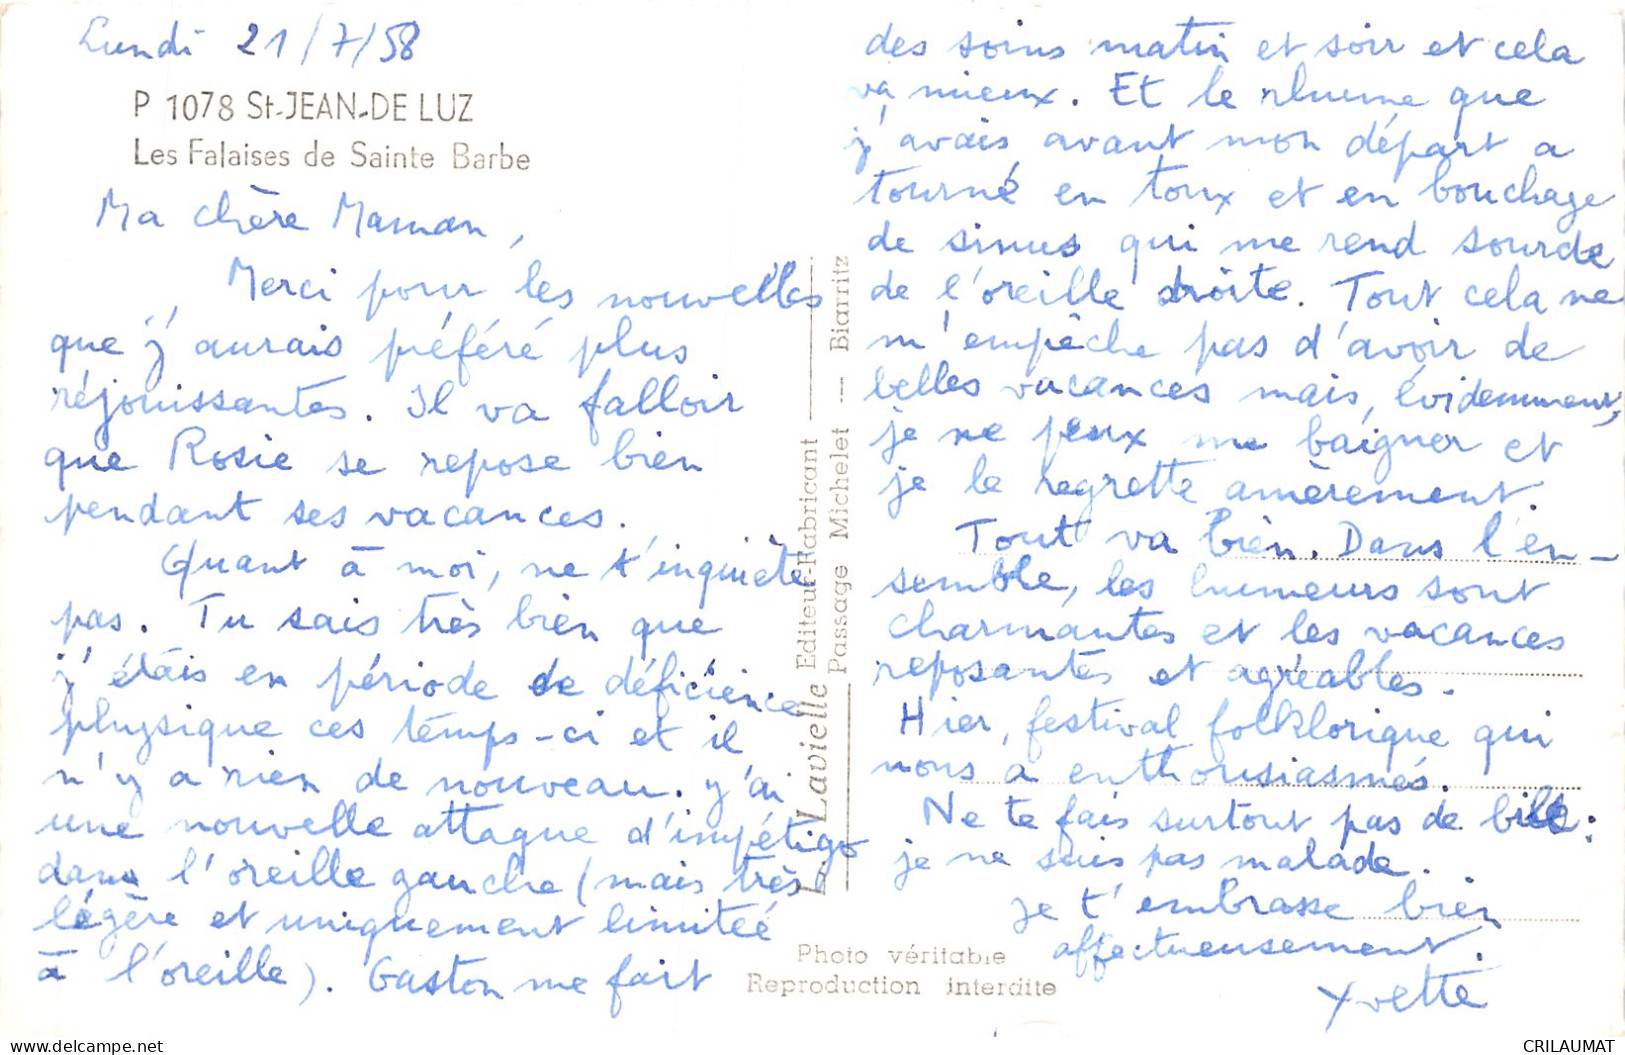 Lundi 21/7/58
P 1078 St-JEAN-DE LUZ
Les Falaises de Sainte Barbe
Ma chère Maman,
Merci pour les nouvelles
que j'aurais préféré plus
réjouissantes. Il va falloir
que Rosie se repose bien
pendant ses vacances.
Quant à moi, ne t'inquiète
pas. Tu sais très bien que
j'étais en période de déficience
physique ces temps-ci et il
n'y a rien de nouveau. J'ai
une nouvelle attaque d'impétigo
dans l'oreille gauche (mais très
légère et uniquement limitée
à l'oreille). Gaston me fait
des soins matin et soir et cela
va mieux. Et le rhume que
j'avais avant mon départ a
tourné en toux et en bouchage
de sinus qui me rend sourde
de l'oreille droite. Tout cela ne
m'empêche pas d'avoir de
belles vacances mais, évidemment,
je ne peux me baigner et
je le regrette amèrement.
Tout va bien. Dans l'en-
semble, les humeurs sont
charmantes et les vacances
reposantes et agréables.
Hier, festival folklorique qui
nous a enthousiasmés.
Ne te fais surtout pas de bile :
je ne suis pas malade.
Je t'embrasse bien
affectueusement.
Yvette
L. Lavielle Editeur-Fabricant
Passage Michelet — Biarritz
Photo véritable
Reproduction interdite
www.delcampe.net
CRILAUMAT